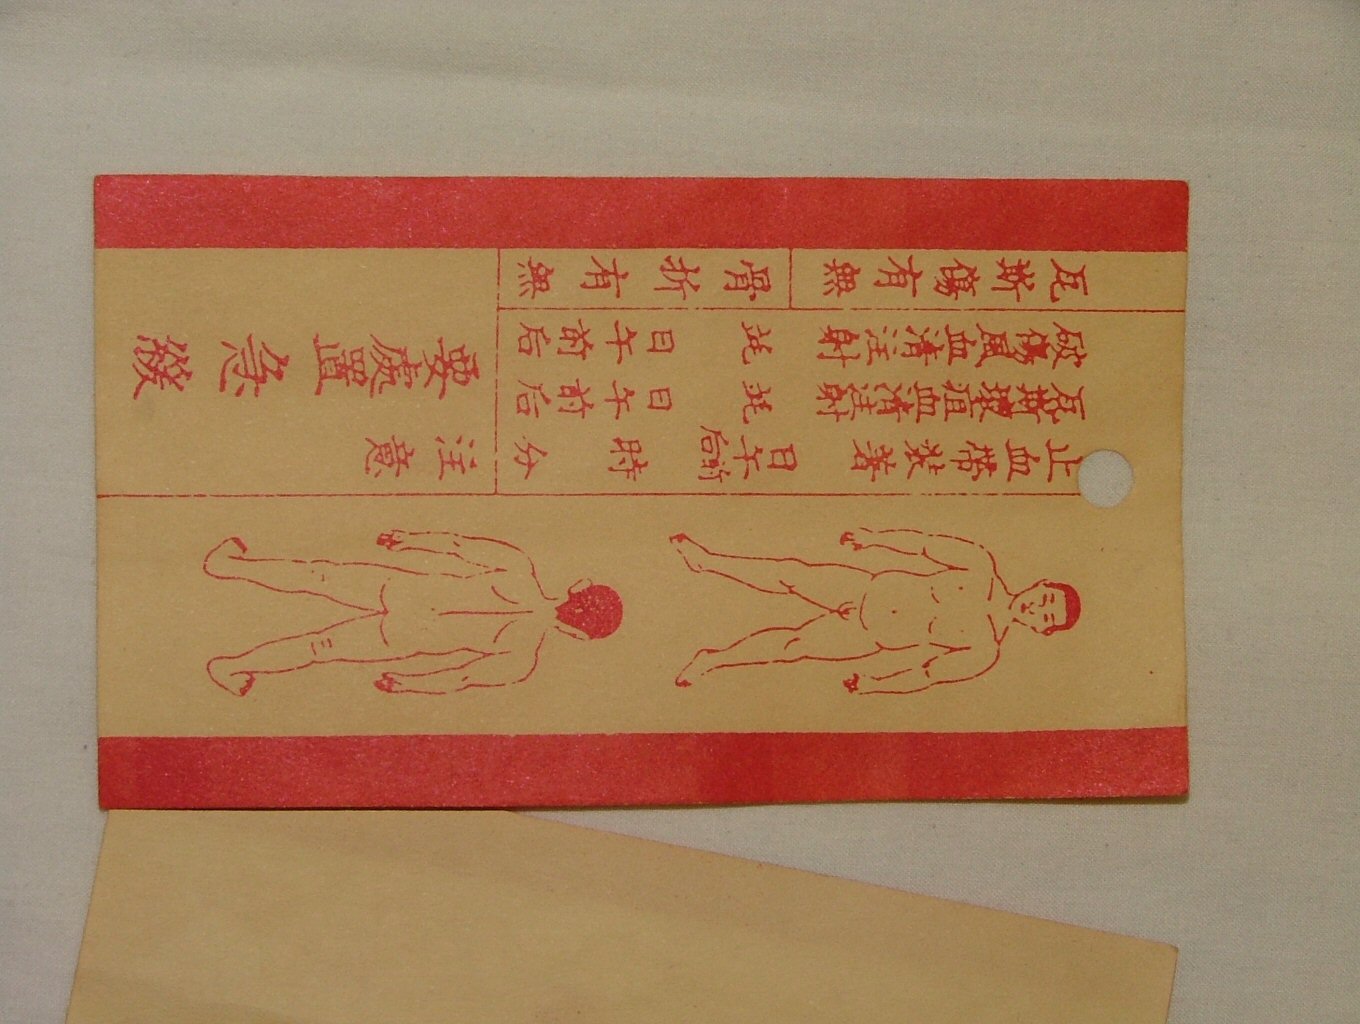 止血帶装著 日午前后 時 分
瓦斯壊疽血清注射 竓 日午前后
破傷風血清注射 竓 日午前后
瓦斯傷有無
骨折有無
注意
要處置 急